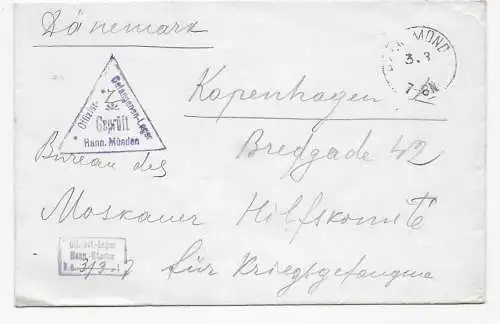 Dänemark
MOND
3.3
7-8N
Gefangenen-Lager
Offizier-
Geprüft
Hann. Münden
Kopenhagen K
Bredgade 42
Bureau des
Moskauer Hilfskomité
für Kriegsgefangene
Offizier-Lager
Hann.-Münden
3/3